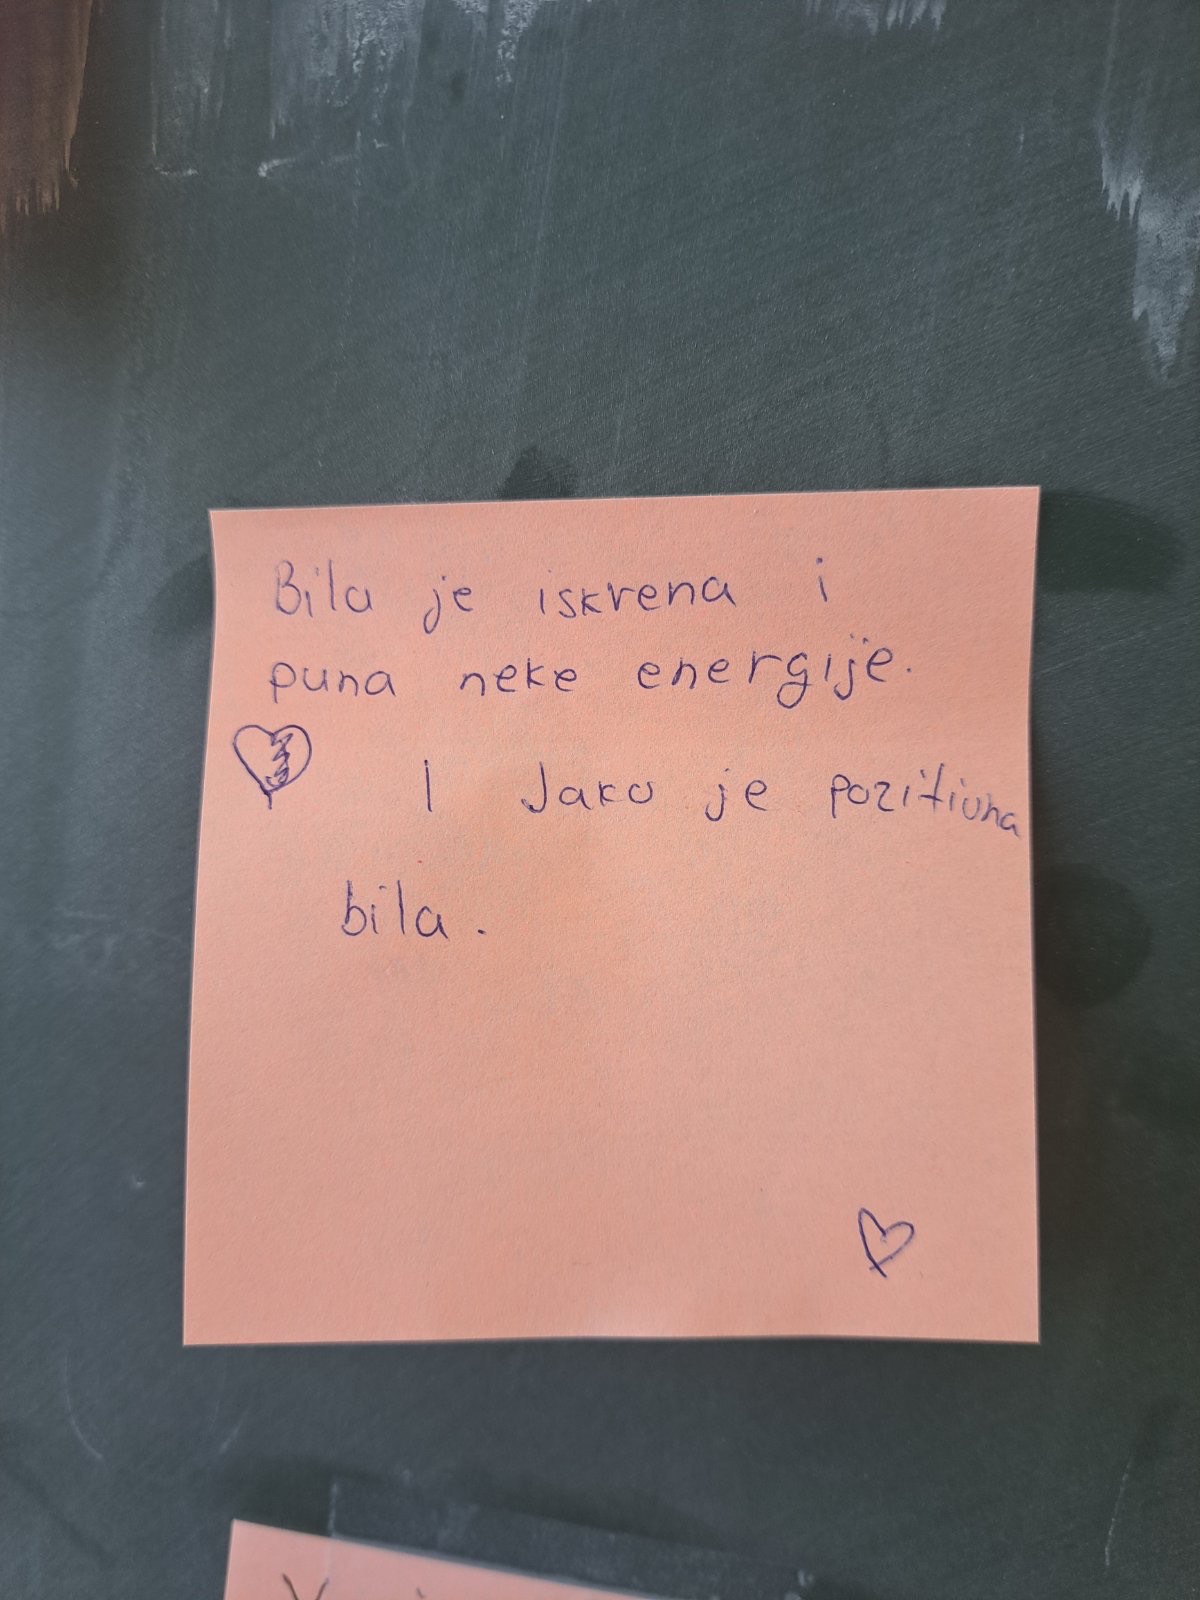 Bila je iskrena i
puna neke energije.
I Jako je pozitivna
bila.